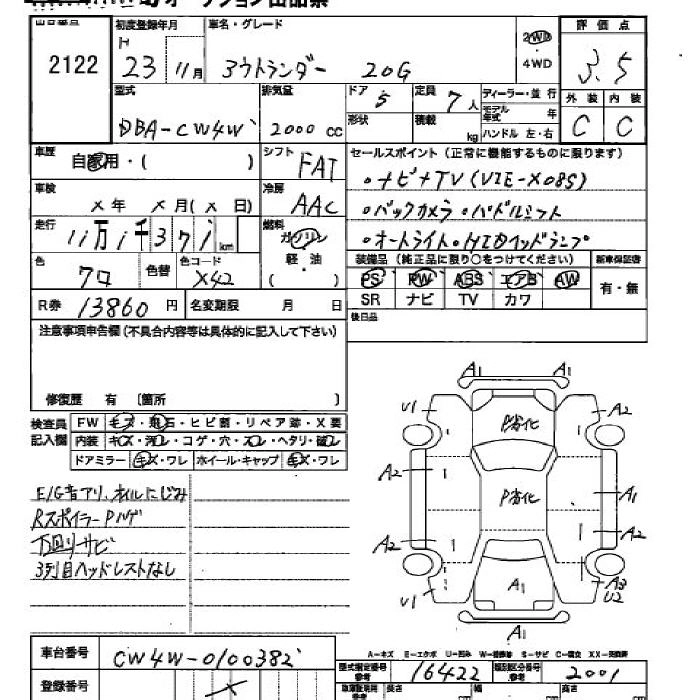 オークション出品票
出品番号 初度登録年月 車名・グレード 評価点
2122 H 23 11月 アウトランダー 20G 2WD・4WD 3.5
型式 排気量 ドア 定員 ディーラー・並行 外装 内装
DBA-CW4W 2000cc 5 7人 モデル年式 年 C C
形状 積載 kg ハンドル 左・右
車歴 自家用・( ) シフト FAT セールスポイント(正常に機能するものに限ります)
車検 ×年 ×月(×日) 冷房 AAC ・ナビ+TV(VIE-X08S)
・バックカメラ・パドルシフト
走行 11万1千371km 燃料 ガソリン 軽・油 ( ) ・オートライト・HIDヘッドランプ
色 クロ 色替 色コード X42 装備品(純正品に限り○をつけてください) 新車保証書
PS PW ABS エアB AW 有・無
R券 13860円 名変期限 月 日 SR ナビ TV カワ
注意事項申告欄(不具合内容等は具体的に記入して下さい) 後日品
修復歴 有 〔箇所 〕
検査員記入欄 FW キズ・飛石・ヒビ割・リペア跡・X要
内装 キズ・汚レ・コゲ・穴・スレ・ヘタリ・破レ
ドアミラー キズ・ワレ ホイール・キャップ キズ・ワレ
E/G音アリ、オイルにじみ
RスポイラーPハゲ
下回りサビ
3列目ヘッドレストなし
A1 A1
U1 A2
P劣化
A2 P劣化 A1
A2 A2
U1 A1 A3 U2
A1
A-キズ E-エクボ U-凹み W-補修跡 S-サビ C-腐食 XX-交換済
車台番号 CW4W-0100382 型式指定番号 参考 16422 類別区分番号 参考 2001
登録番号 × 長さ 幅 高さ